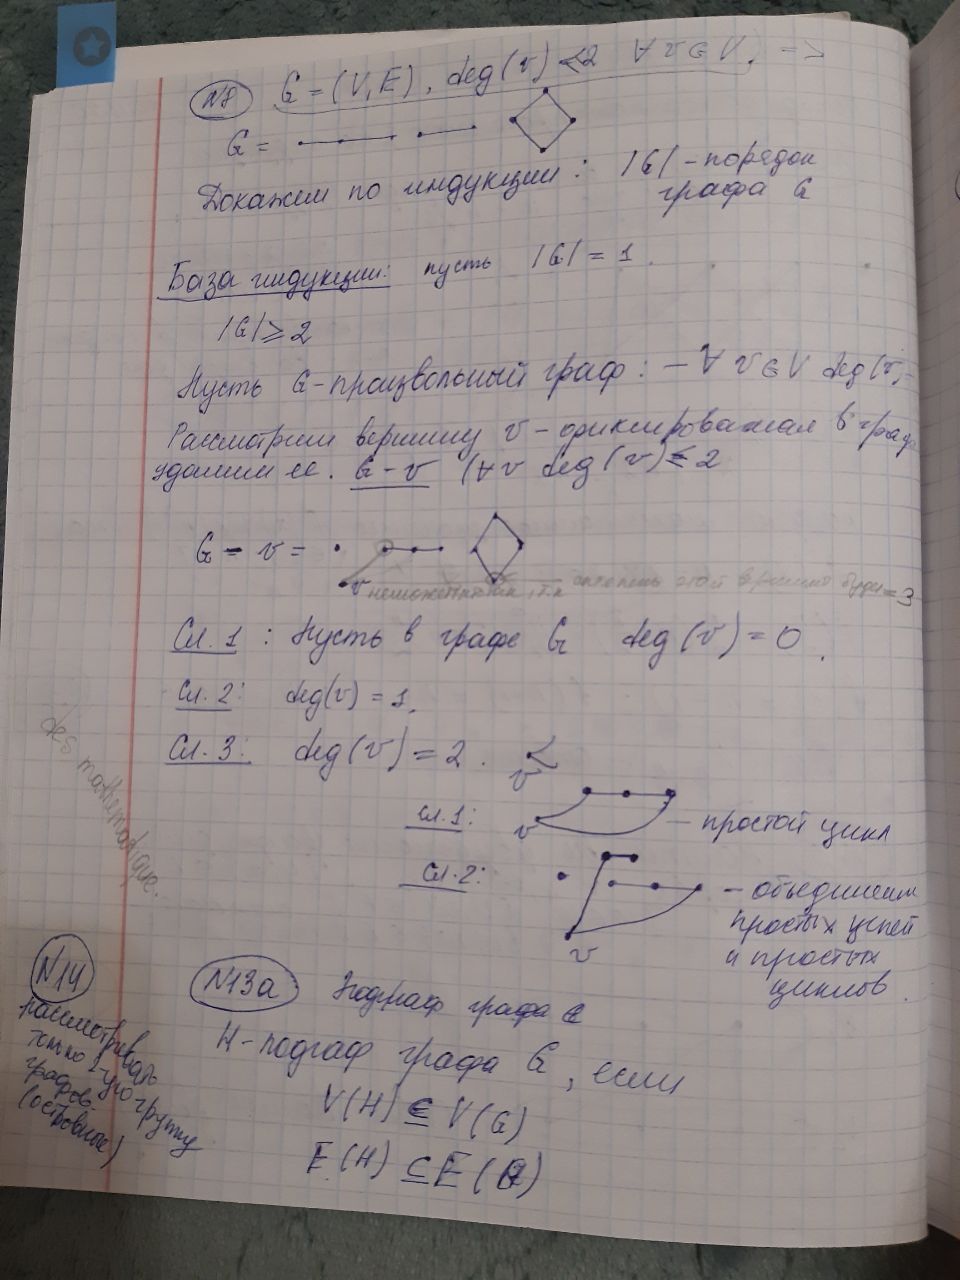 №8 G = (V, E), deg(v) ≤ 2 ∀ v ∈ V. =>
G =
Докажем по индукции: |G| - порядок
графа G
База индукции: пусть |G| = 1.
|G| ≥ 2
Пусть G - произвольный граф: - ∀ v ∈ V deg(v)
Рассмотрим вершину v - фиксированная в графе
удалим ее. G - v (∀ v deg(v) ≤ 2
G - v =
v
степень этой вершины будет = 3
Сл. 1: Пусть в графе G deg(v) = 0.
Сл. 2: deg(v) = 1.
Сл. 3: deg(v) = 2.
v
Сл. 1: v - простой цикл
Сл. 2: - объединим
простых цепей
v и простых
циклов.
des mathématique.
№14
рассмотривать
только
графов
(остовные)
№13а Подграф графа G
H - подграф графа G, если
V(H) ⊆ V(G)
E(H) ⊆ E(G)